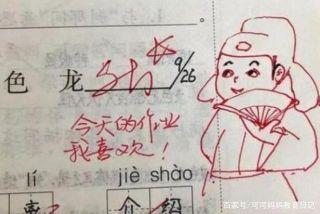 色 龙 9/26
今天的作业
我喜欢！
lí jiè shào
介 绍
百家号/可可妈妈教育日记